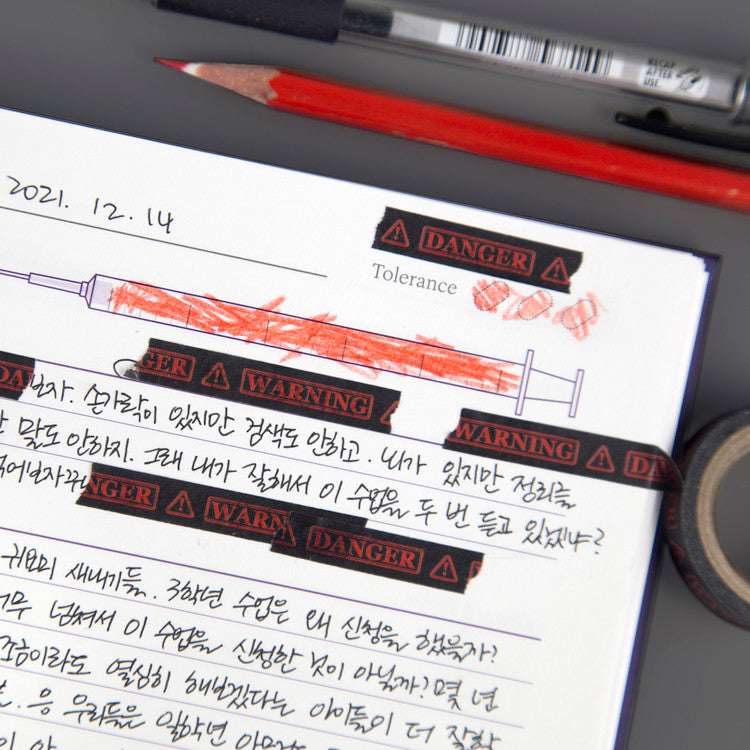 RECAP
AFTER
USE.
2021. 12. 14
DANGER
Tolerance
GER WARNING
DA
보자. 손가락이 있지만 검색도 안하고. 뇌가 있지만 정리를
WARNING DA
말도 안하지. 그래 내가 잘해서 이 수업을 두 번 듣고 있겠냐?
NGER WARN DANGER
귀요미 새내기들. 3학년 수업은 왜 신청을 했을까?
넘쳐서 이 수업을 신청한 것이 아닐까? 몇 년
조금이라도 열심히 해보겠다는 아이들이 더 잘할
응 우리들은 일학년